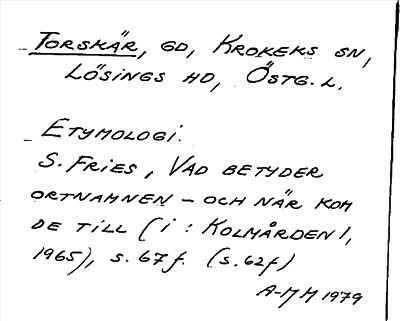 TORSKÄR, GD, KROKEKS SN,
LÖSINGS HD, ÖSTG. L.
ETYMOLOGI.
S. FRIES, VAD BETYDER
ORTNAMNEN - OCH NÄR KOM
DE TILL (i: KOLMÅRDEN 1,
1965), S. 67 f. (S. 62 f)
A-MM 1979